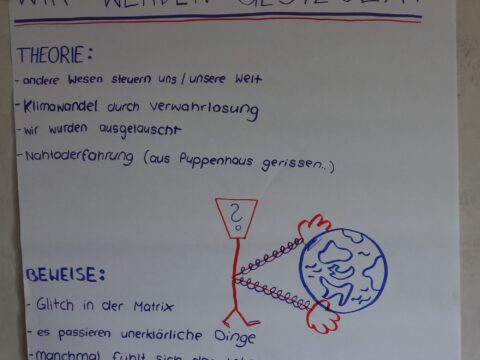 WIR WERDEN GESTEUERT!
THEORIE:
- andere Wesen steuern uns / unsere Welt
- Klimawandel durch Verwahrlosung
- wir wurden ausgetauscht
- Nahtoderfahrung (aus Puppenhaus gerissen..)
?
BEWEISE:
- Glitch in der Matrix
- es passieren unerklärliche Dinge
- manchmal fühlt sich das